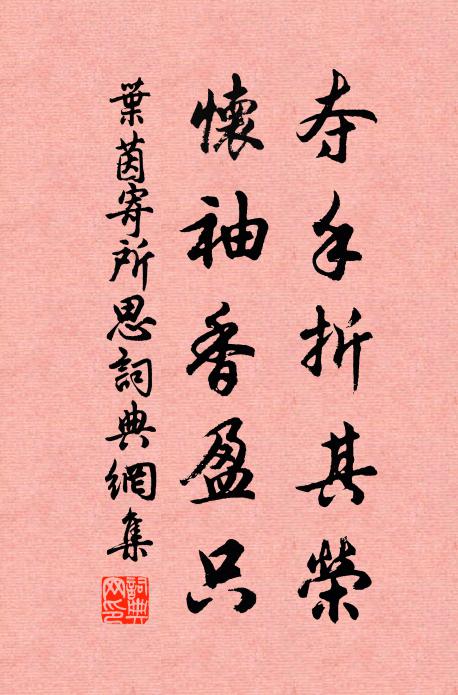 夺手折其榮
懷袖香盈只
葉茵寄所思詞典網集
詞典
网印